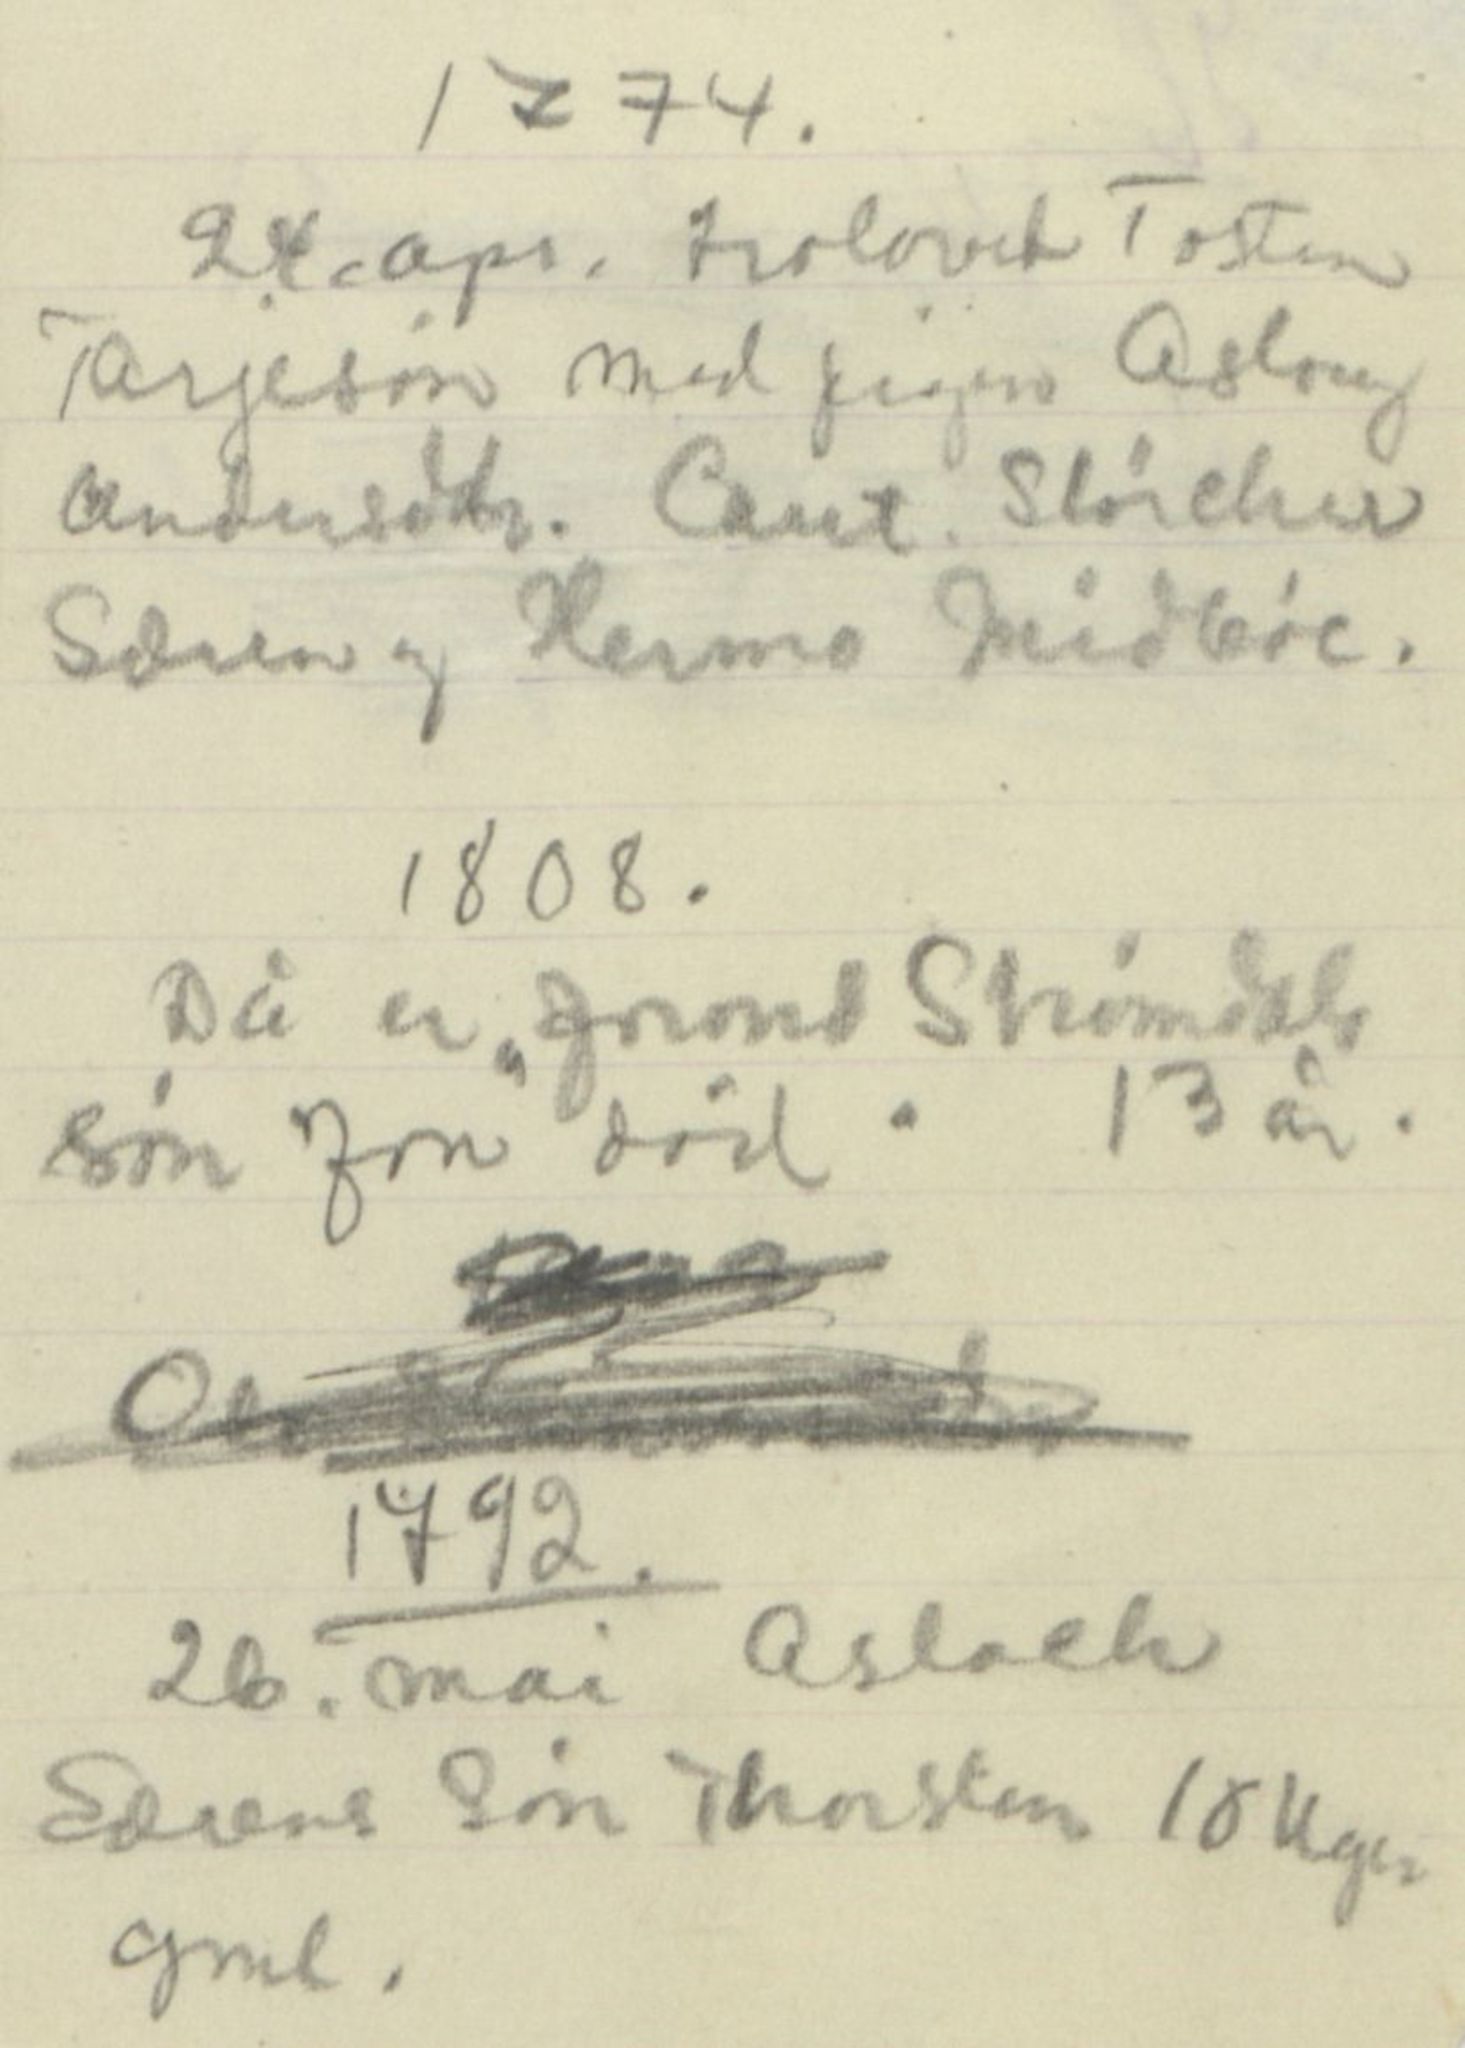 1774.
24. apr. trolovet Tosten
Tarjesón med pigen Aslaug
Andersdtr. Caut. Stórcker
Sdren og Hermo Midbóe.
1808.
Då er "Jorond Strómdtls
són "Jon" död. 13 år.
1792.
26. mai Aslach
Edrens Són Thorsten 18 Uger
gml.